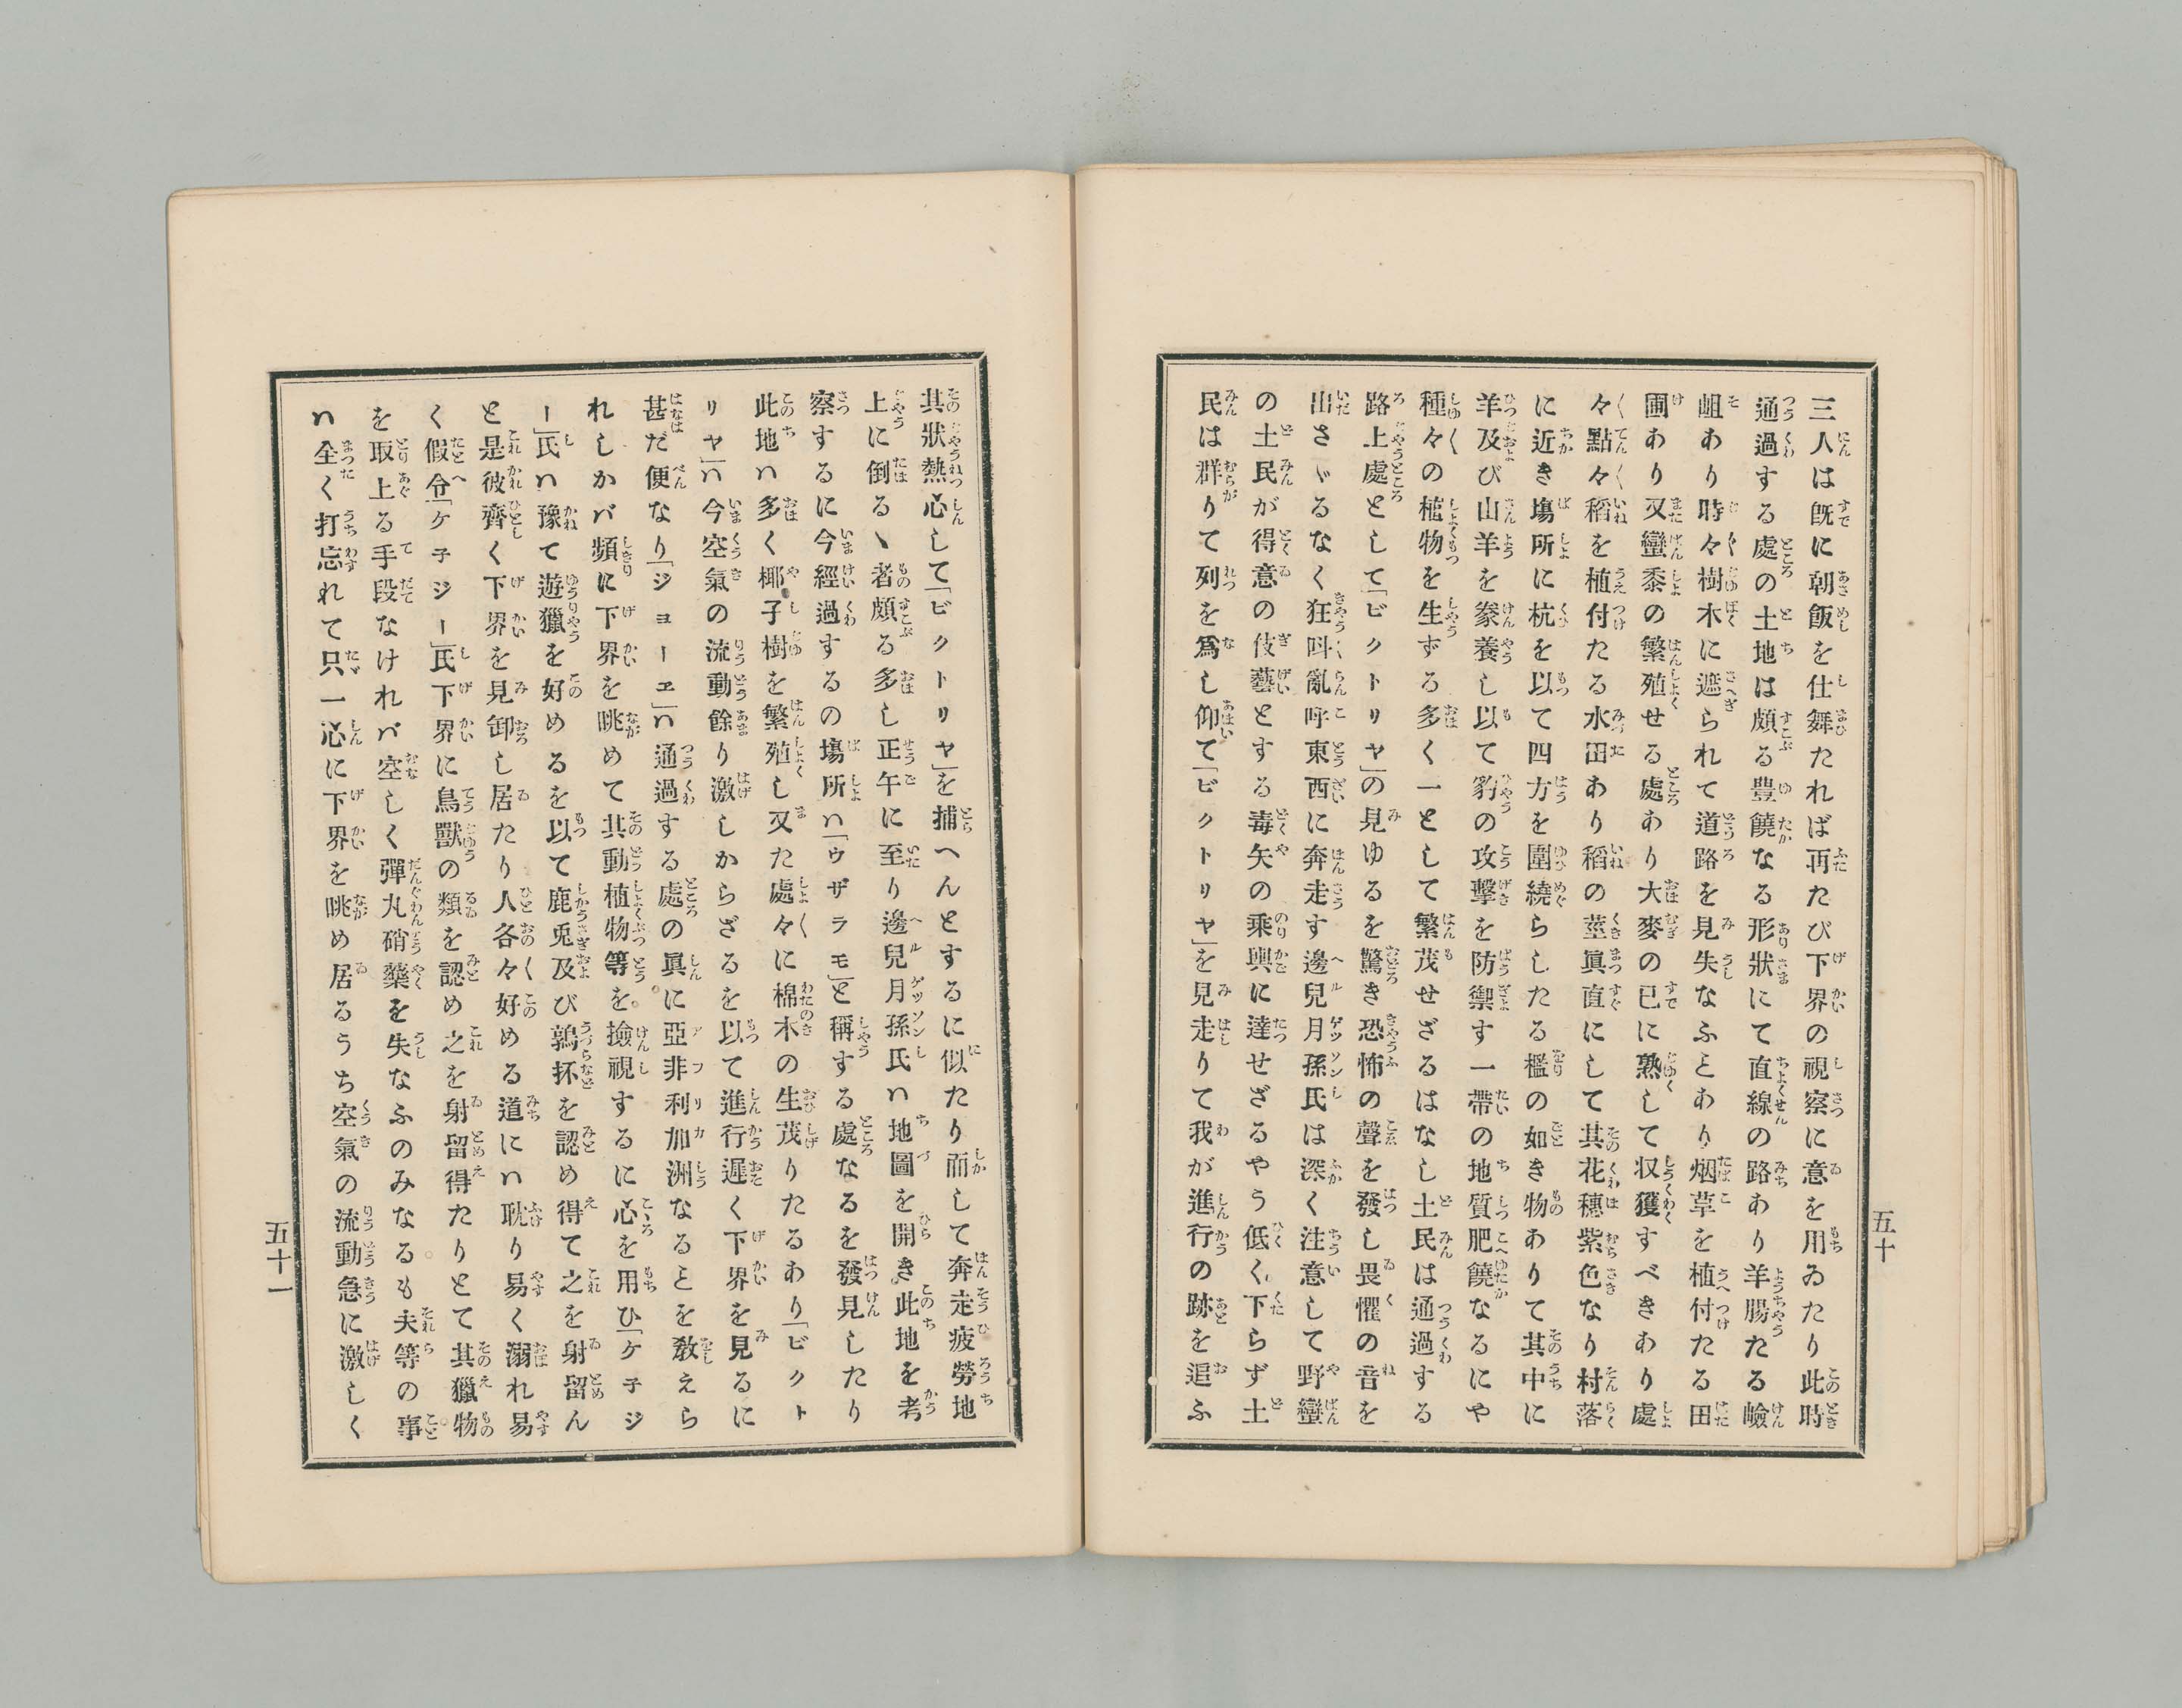 三人は既に朝飯を仕舞たれば再たび下界の視察に意を用ゐたり此時
通過する處の土地は頗る豊饒なる形狀にて直線の路あり羊腸たる嶮
岨あり時々樹木に遮られて道路を見失なふとあり烟草を植付たる田
圃あり又蠻黍の繁殖せる處あり大麥の已に熟して収獲すべきあり處
々點々稻を植付たる水田あり稻の莖眞直にして其花穗紫色なり村落
に近き塲所に杭を以て四方を圍繞らしたる檻の如き物ありて其中に
羊及び山羊を豢養し以て豹の攻擊を防禦す一帶の地質肥饒なるにや
種々の植物を生ずる多く一として繁茂せざるはなし土民は通過する
路上處として「ビクトリヤ」の見ゆるを驚き恐怖の聲を發し畏懼の音を
出さゞるなく狂呌亂呼東西に奔走す邊兒月孫氏は深く注意して野蠻
の土民が得意の伎藝とする毒矢の乘輿に達せざるやう低く下らず土
民は群りて列を爲し仰て「ビクトリヤ」を見走りて我が進行の跡を追ふ
五十
其狀熱心して「ビクトリヤ」を捕へんとするに似たり而して奔走疲勞地
上に倒るゝ者頗る多し正午に至り邊兒月孫氏ハ地圖を開き此地を考
察するに今經過するの塲所ハ「ウザラモ」と稱する處なるを發見したり
此地ハ多く椰子樹を繁殖し又た處々に棉木の生茂りたるあり「ビクト
リヤ」ハ今空氣の流動餘り激しからざるを以て進行遲く下界を見るに
甚だ便なり「ジヨーエ」ハ通過する處の眞に亞非利加洲なるとを敎えら
れしかバ頻に下界を眺めて其動植物等を。撿視するに心を用ひ「ケ子ジ
ー」氏ハ豫て遊獵を好めるを以て鹿兎及び鶉抔を認め得て之を射留ん
と是彼齊く下界を見御し居たり人各々好める道にハ耽り易く溺れ易
く假令「ケ子ジー」氏下界に鳥獸の類を認め之を射留得たりとて其獵物
を取上る手段なけれバ空しく彈丸硝藥を失なふのみなる。も夫等の事
ハ全く打忘れて只一心に下界を眺め居るうち空氣の流動急に激しく
五十一